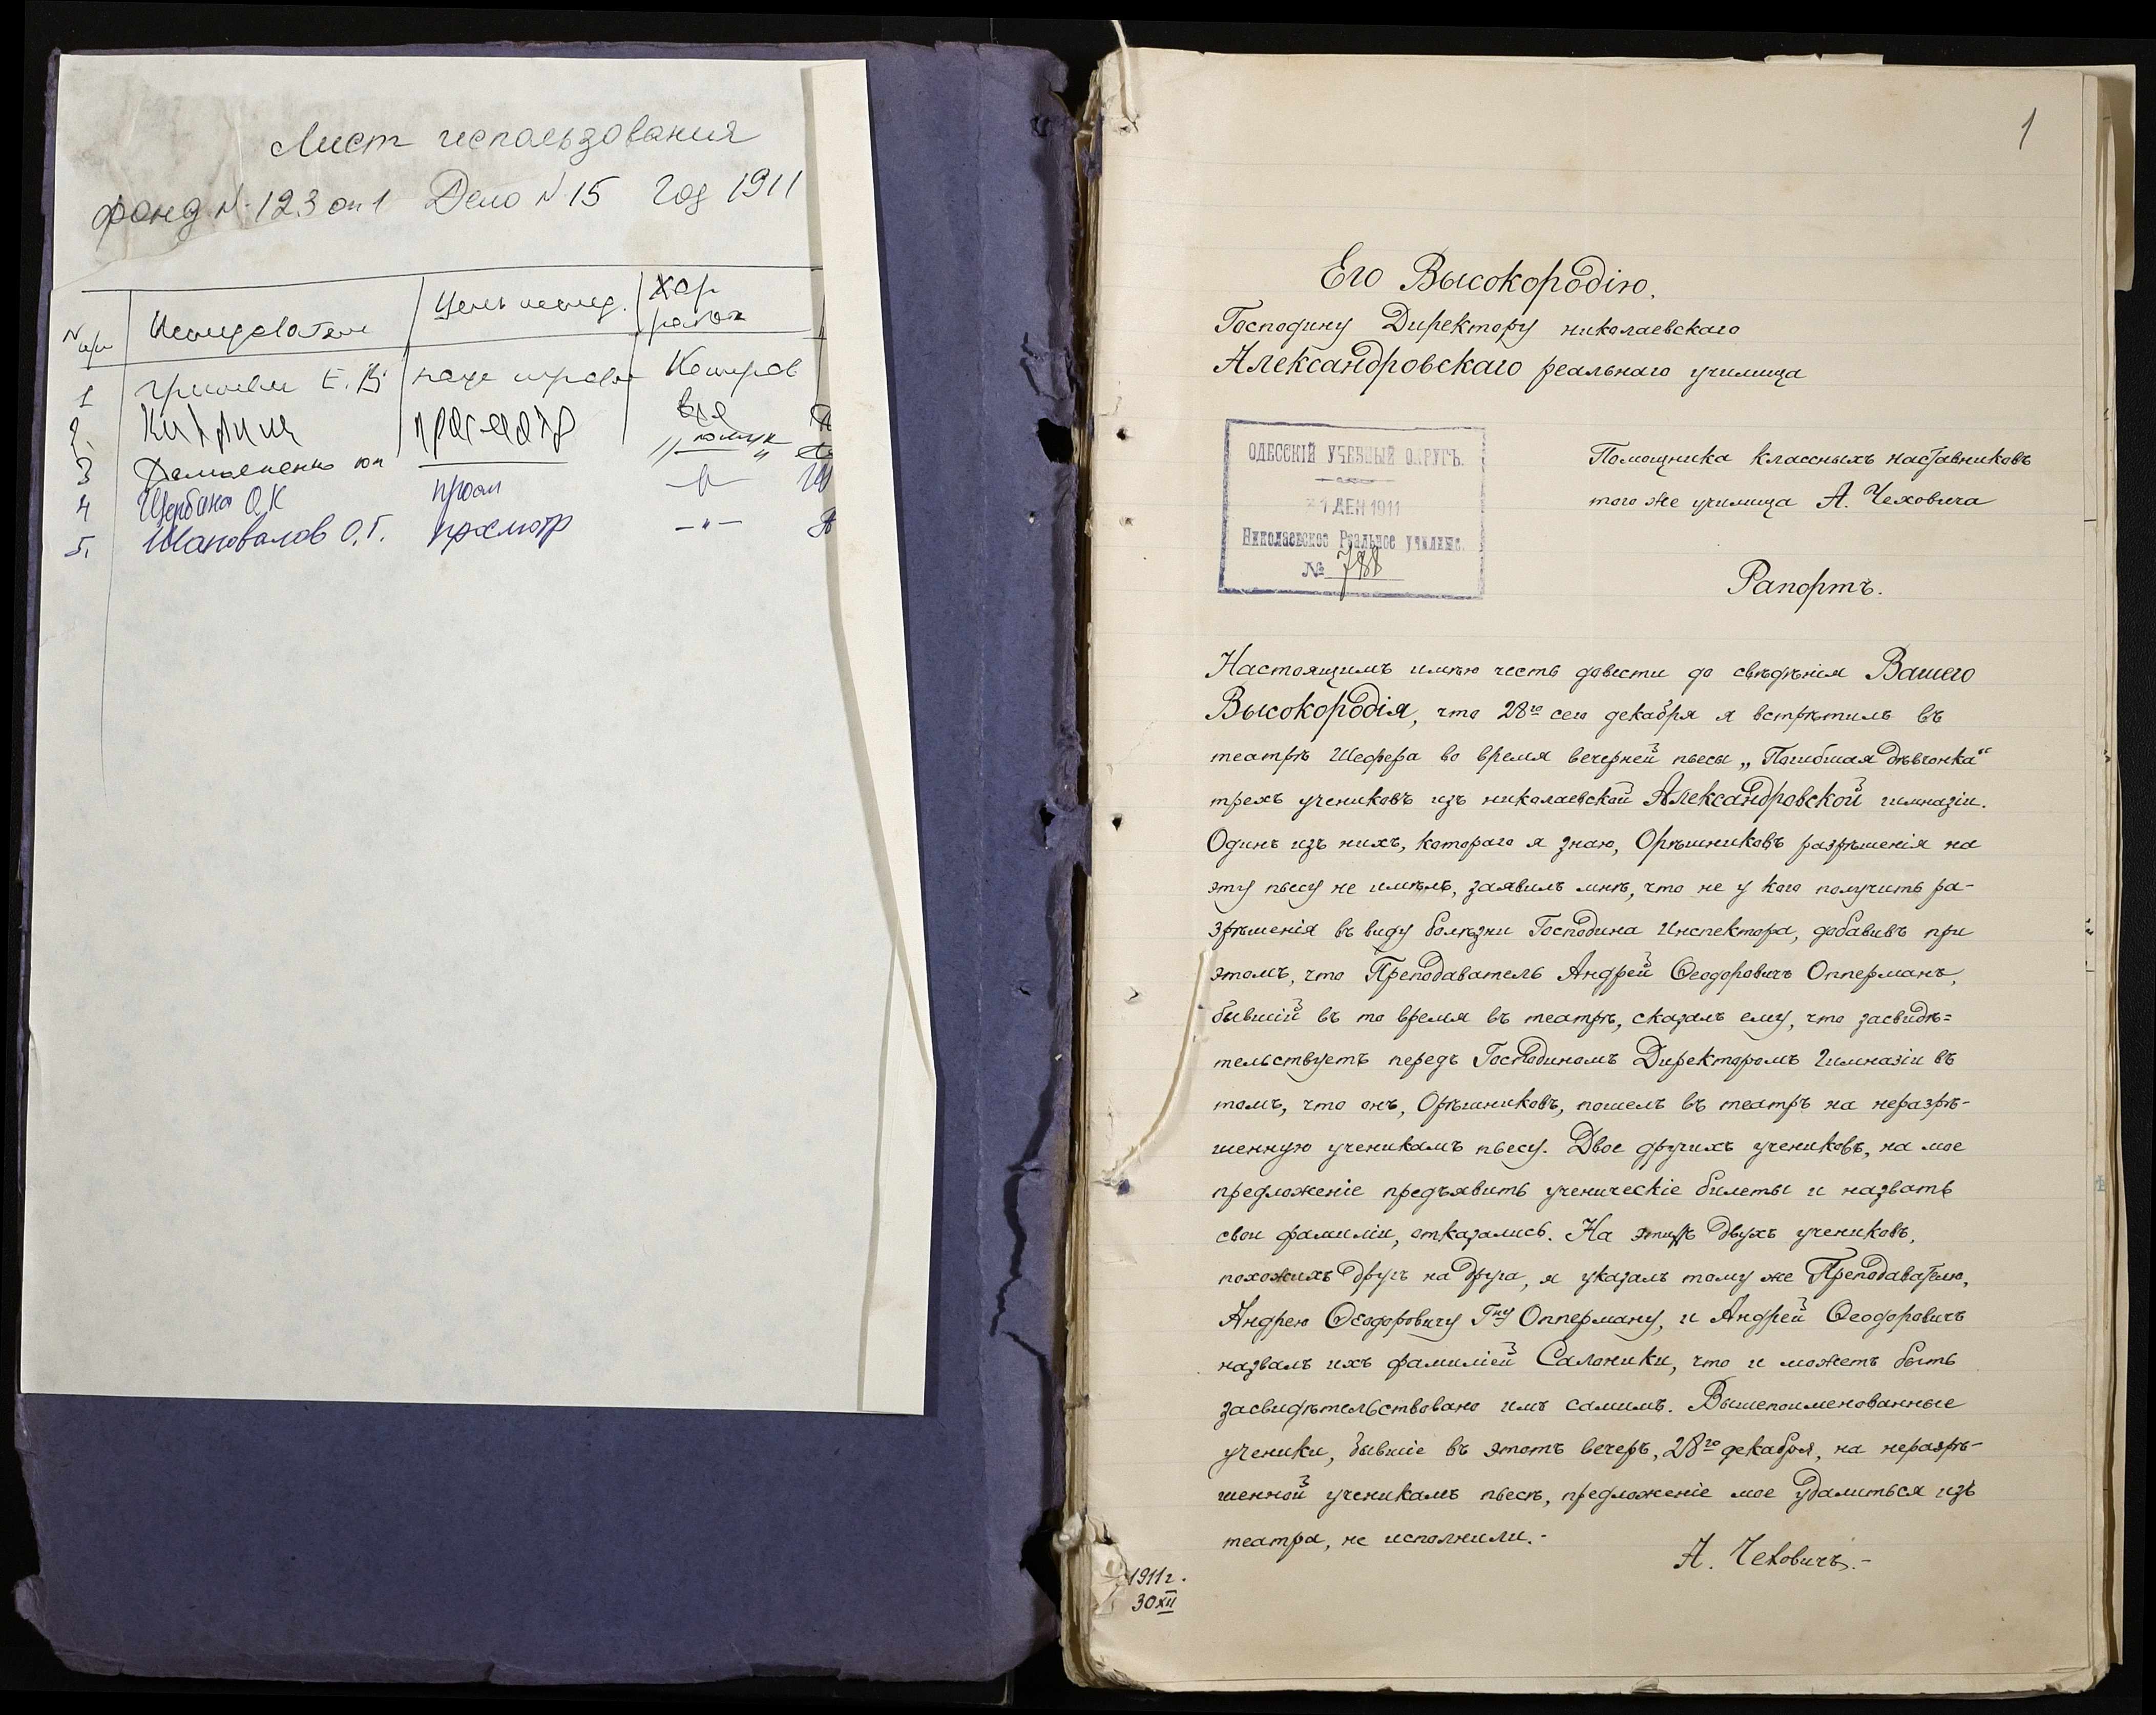 Лист использования
фонд N 123 оп 1 Дело N 15 Год 1911
N п/п
Цель исслед.
Хар работ
1 Е. В.
2. просмотр
3 Демьяненко
4 Щербина О К просм
5. Шаповалов О. Г. просмотр
1
Его Высокородію.
Господину Директору николаевскаго
Александровскаго реальнаго училища
ОДЕССКІЙ УЧЕБНЫЙ ОКРУГЪ.
31 ДЕК 1911
Николаевское Реальное училище.
№ 788
Помощника классныхъ наставниковъ
того же училища А. Чеховича
Рапортъ.
Настоящимъ имѣю честь довести до свѣдѣнія Вашего
Высокородія, что 28го сего декабря я встрѣтилъ въ
театрѣ Шефера во время вечерней пьесы „Погибшая дѣвчонка“
трехъ учениковъ изъ николаевской Александровской гимназіи.
Одинъ изъ нихъ, котораго я знаю, Орѣшниковъ разрѣшенія на
эту пьесу не имѣлъ, заявилъ мнѣ, что не у кого получить ра-
зрѣшенія въ виду болѣзни Господина Инспектора, добавивъ при
этомъ, что Преподаватель Андрей Ѳеодоровичъ Опперманъ,
бывшій въ то время въ театрѣ, сказалъ ему, что засвидѣ=
тельствуетъ передъ Господиномъ Директоромъ Гимназіи въ
томъ, что онъ, Орѣшниковъ, пошелъ въ театръ на неразрѣ-
шенную ученикамъ пьесу. Двое другихъ учениковъ, на мое
предложеніе предъявить ученическіе билеты и назвать
свои фамиліи, отказались. На этихъ двухъ учениковъ,
похожихъ другъ на друга, я указалъ тому же Преподавателю,
Андрею Ѳеодоровичу Гну Опперману, и Андрей Ѳеодоровичъ
назвалъ ихъ фамиліей Салоники, что и можетъ быть
засвидѣтельствовано имъ самимъ. Вышепоименованные
ученики, бывшіе въ этотъ вечеръ, 28го декабря, на неразрѣ-
шенной ученикамъ пьесѣ, предложеніе мое удалиться изъ
театра, не исполнили.-
А. Чеховичъ.-
1911 г.
30 XII